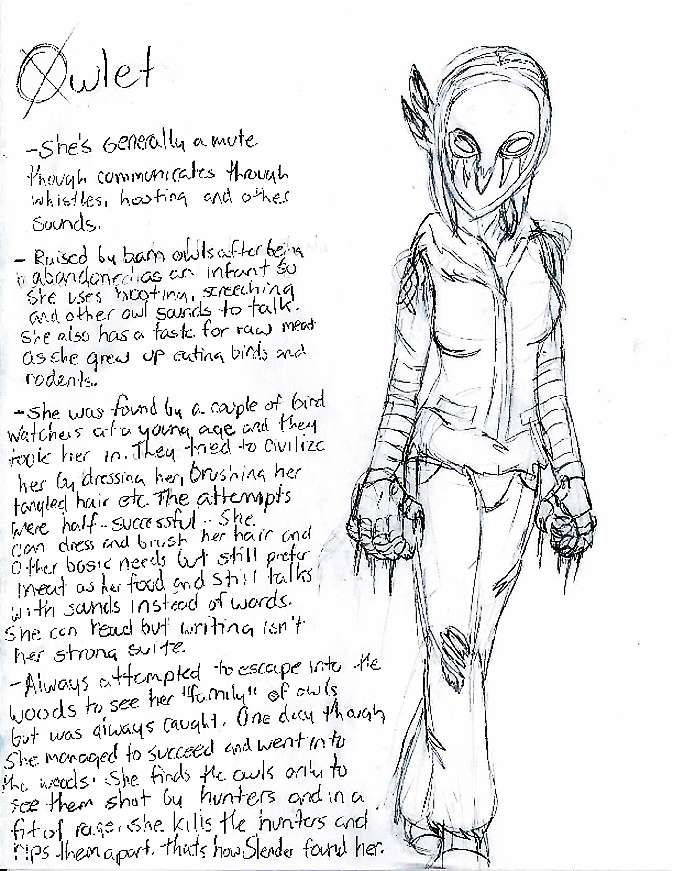 Owlet
-She's Generally a mute
though communicates through
whistles, hooting and other
Sounds.
- Raised by barn owls after being
abandoned as an infant so
she uses hooting, screeching
and other owl sounds to talk.
She also has a taste for raw meat
as she grew up eating birds and
rodents.
-She was found by a couple of bird
watchers at a young age and they
took her in. They tried to civilize
her by dressing her, brushing her
tangled hair etc. The attempts
were half-successful.. She
can dress and brush her hair and
other basic needs but still prefer
meat as her food and still talks
with sounds instead of words.
She can read but writing isn't
her strong suite.
-Always attempted to escape into the
woods to see her "family" of owls
but was always caught. One day though
she managed to succeed and went into
the woods. She finds the owls only to
see them shot by hunters and in a
fit of rage, she kills the hunters and
rips them apart. thats how Slender found her.